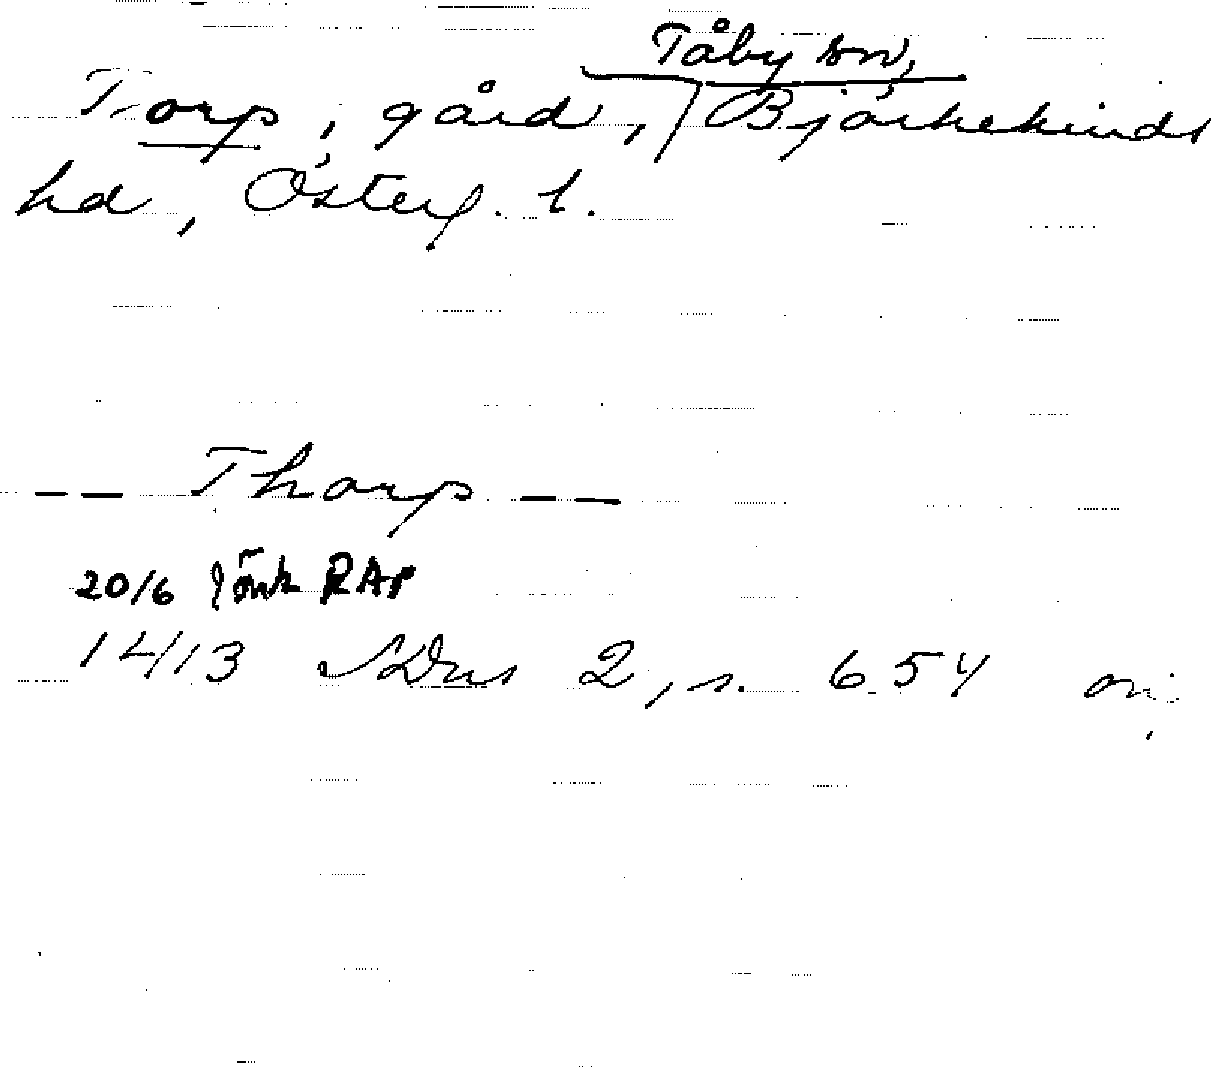 Tåby sn,
Torp, gård, Björkekinds
hd, Österg. l.
— — Thorp — —
20/6 Lönk RAp
1413 SDns 2, s. 654 or.